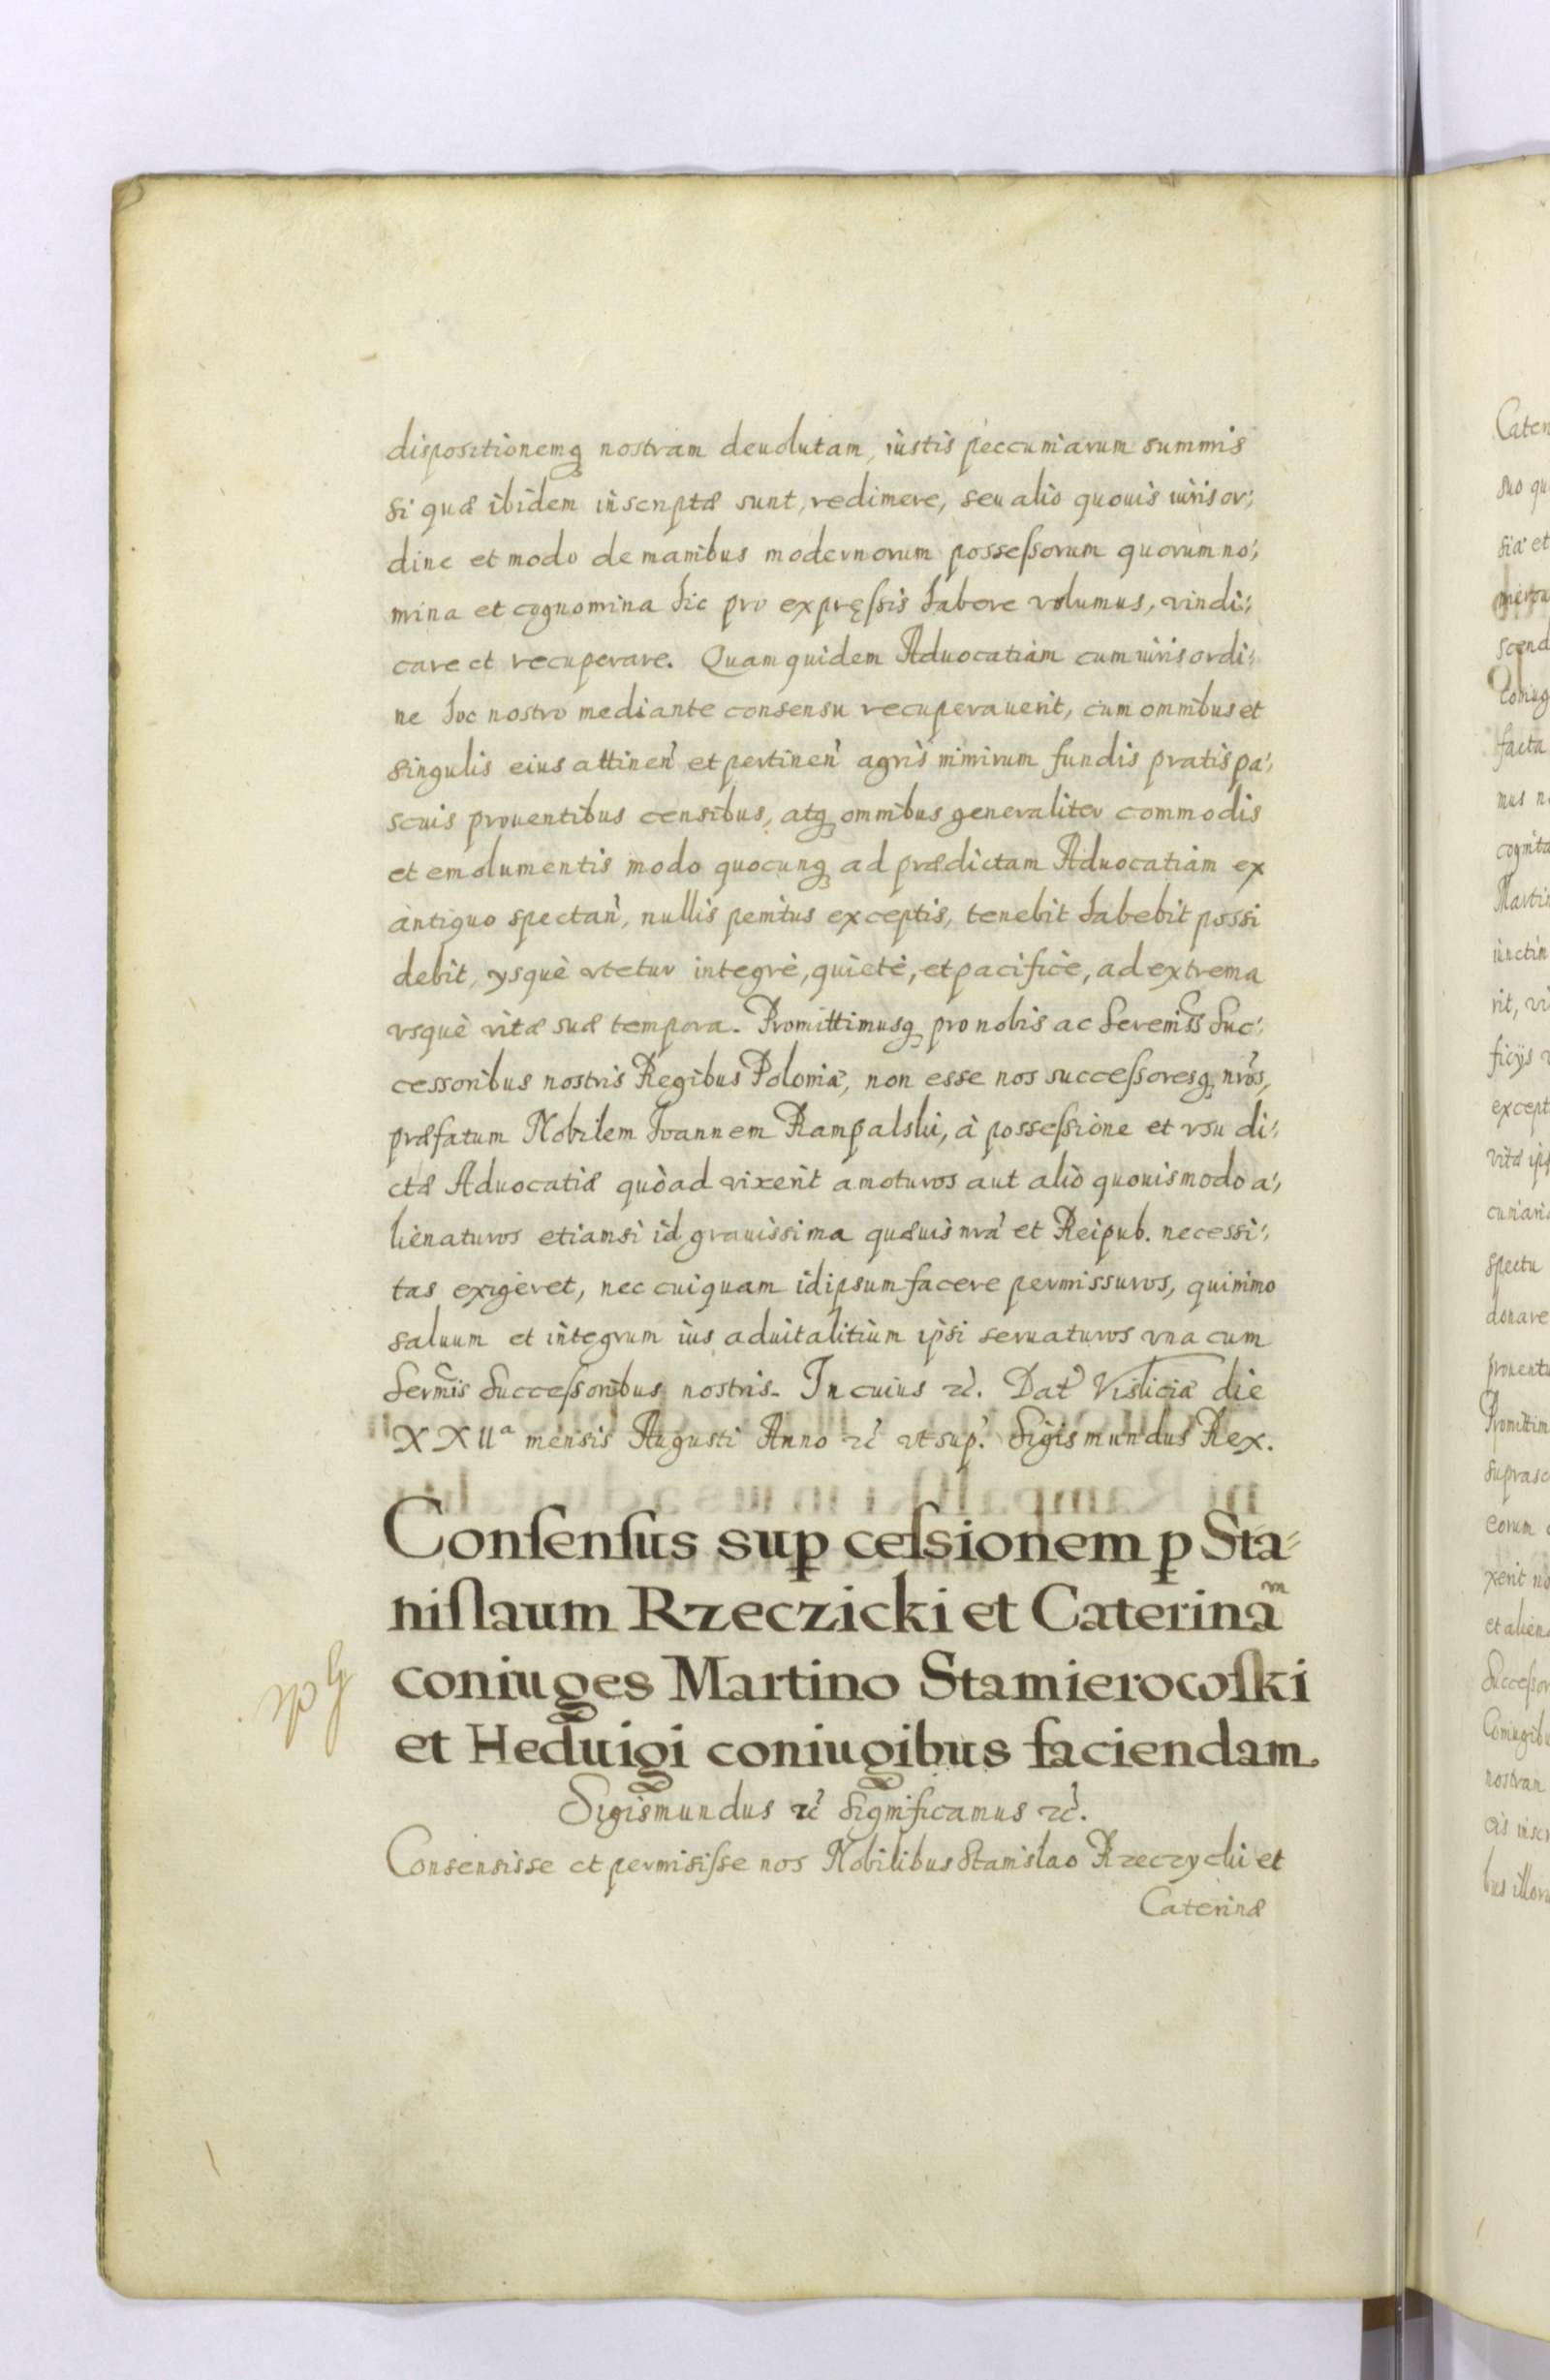 dispositionemq nostram deuolutam, iustis peccuniarum summis
si quæ ibidem inscriptæ sunt, redimere, seu alio quouis iuris or:
dine et modo de manibus modernorum possessorum quorum no:
mina et cognomina hic pro expręssis habere volumus, vindi:
care et recuperare. Quam quidem Aduocatiam cum iuris ordi:
ne hoc nostro mediante consensu recuperauerit, cum omnibus et
singulis eius attinen̄ et pertinen̄ agris nimirum fundis pratis pa:
scuis prouentibus censibus, atq omnibus generaliter commodis
et emolumentis modo quocunq ad prædictam Aduocatiam ex
antiquo spectan̄, nullis penitus exceptis, tenebit habebit possi
debit, ysquè vtetur integrè, quietè, et pacificè, ad extrema
vsquè vitæ suæ tempora. Promittimusq pro nobis ac Sereniss Suc:
cessoribus nostris Regibus Poloniæ, non esse nos successoresq nros,
præfatum Nobilem Ioannem Rampalski, à possessione et vsu di:
ctæ Aduocatiæ quòad vixerit amoturos aut aliò quouismodo a:
lienaturos etiamsi id grauissima quæuis nra et Reipub. necessi:
tas exigeret, nec cuiquam idipsum facere permissuros, quinimo
saluum et integrum ius aduitalitium ipsi seruaturos vna cum
Sermis Successoribus nostris. In cuius &c. Dat Visliciæ die
XXIIa mensis Augusti Anno &c vt sup. Sigismundus Rex.
Consensus sup cessionem p Sta-
nislaum Rzeczicki et Caterinam
coniuges Martino Stamierowski
et Heduigi coniugibus faciendam.
Sigismundus &c Significamus &c.
Consensisse et permisisse nos Nobilibus Stanislao Rzeczycki et
Caterinæ